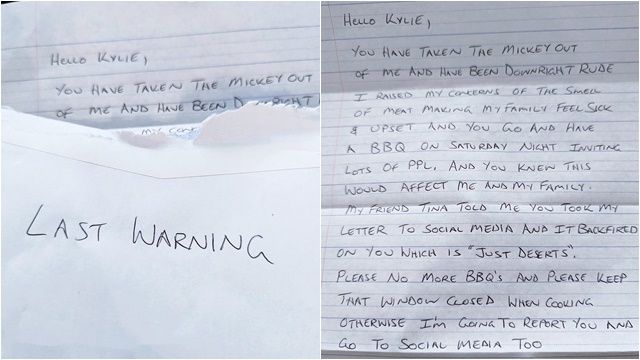 Hello Kylie,
You have taken the mickey out
of me and have been D      right
my conc
LAST WARNING
Hello Kylie,
You have taken the mickey out
of me and have been downright rude
I raised my concerns of the smell
of meat making my family feel sick
& upset and you go and have
a BBQ on Saturday night inviting
lots of ppl, and you knew this
would affect me and my family.
My friend Tina told me you took my
letter to social media and it backfired
on you which is "just deserts".
Please no more BBQ's and please keep
that window closed when cooking
otherwise I'm going to report you and
go to social media too